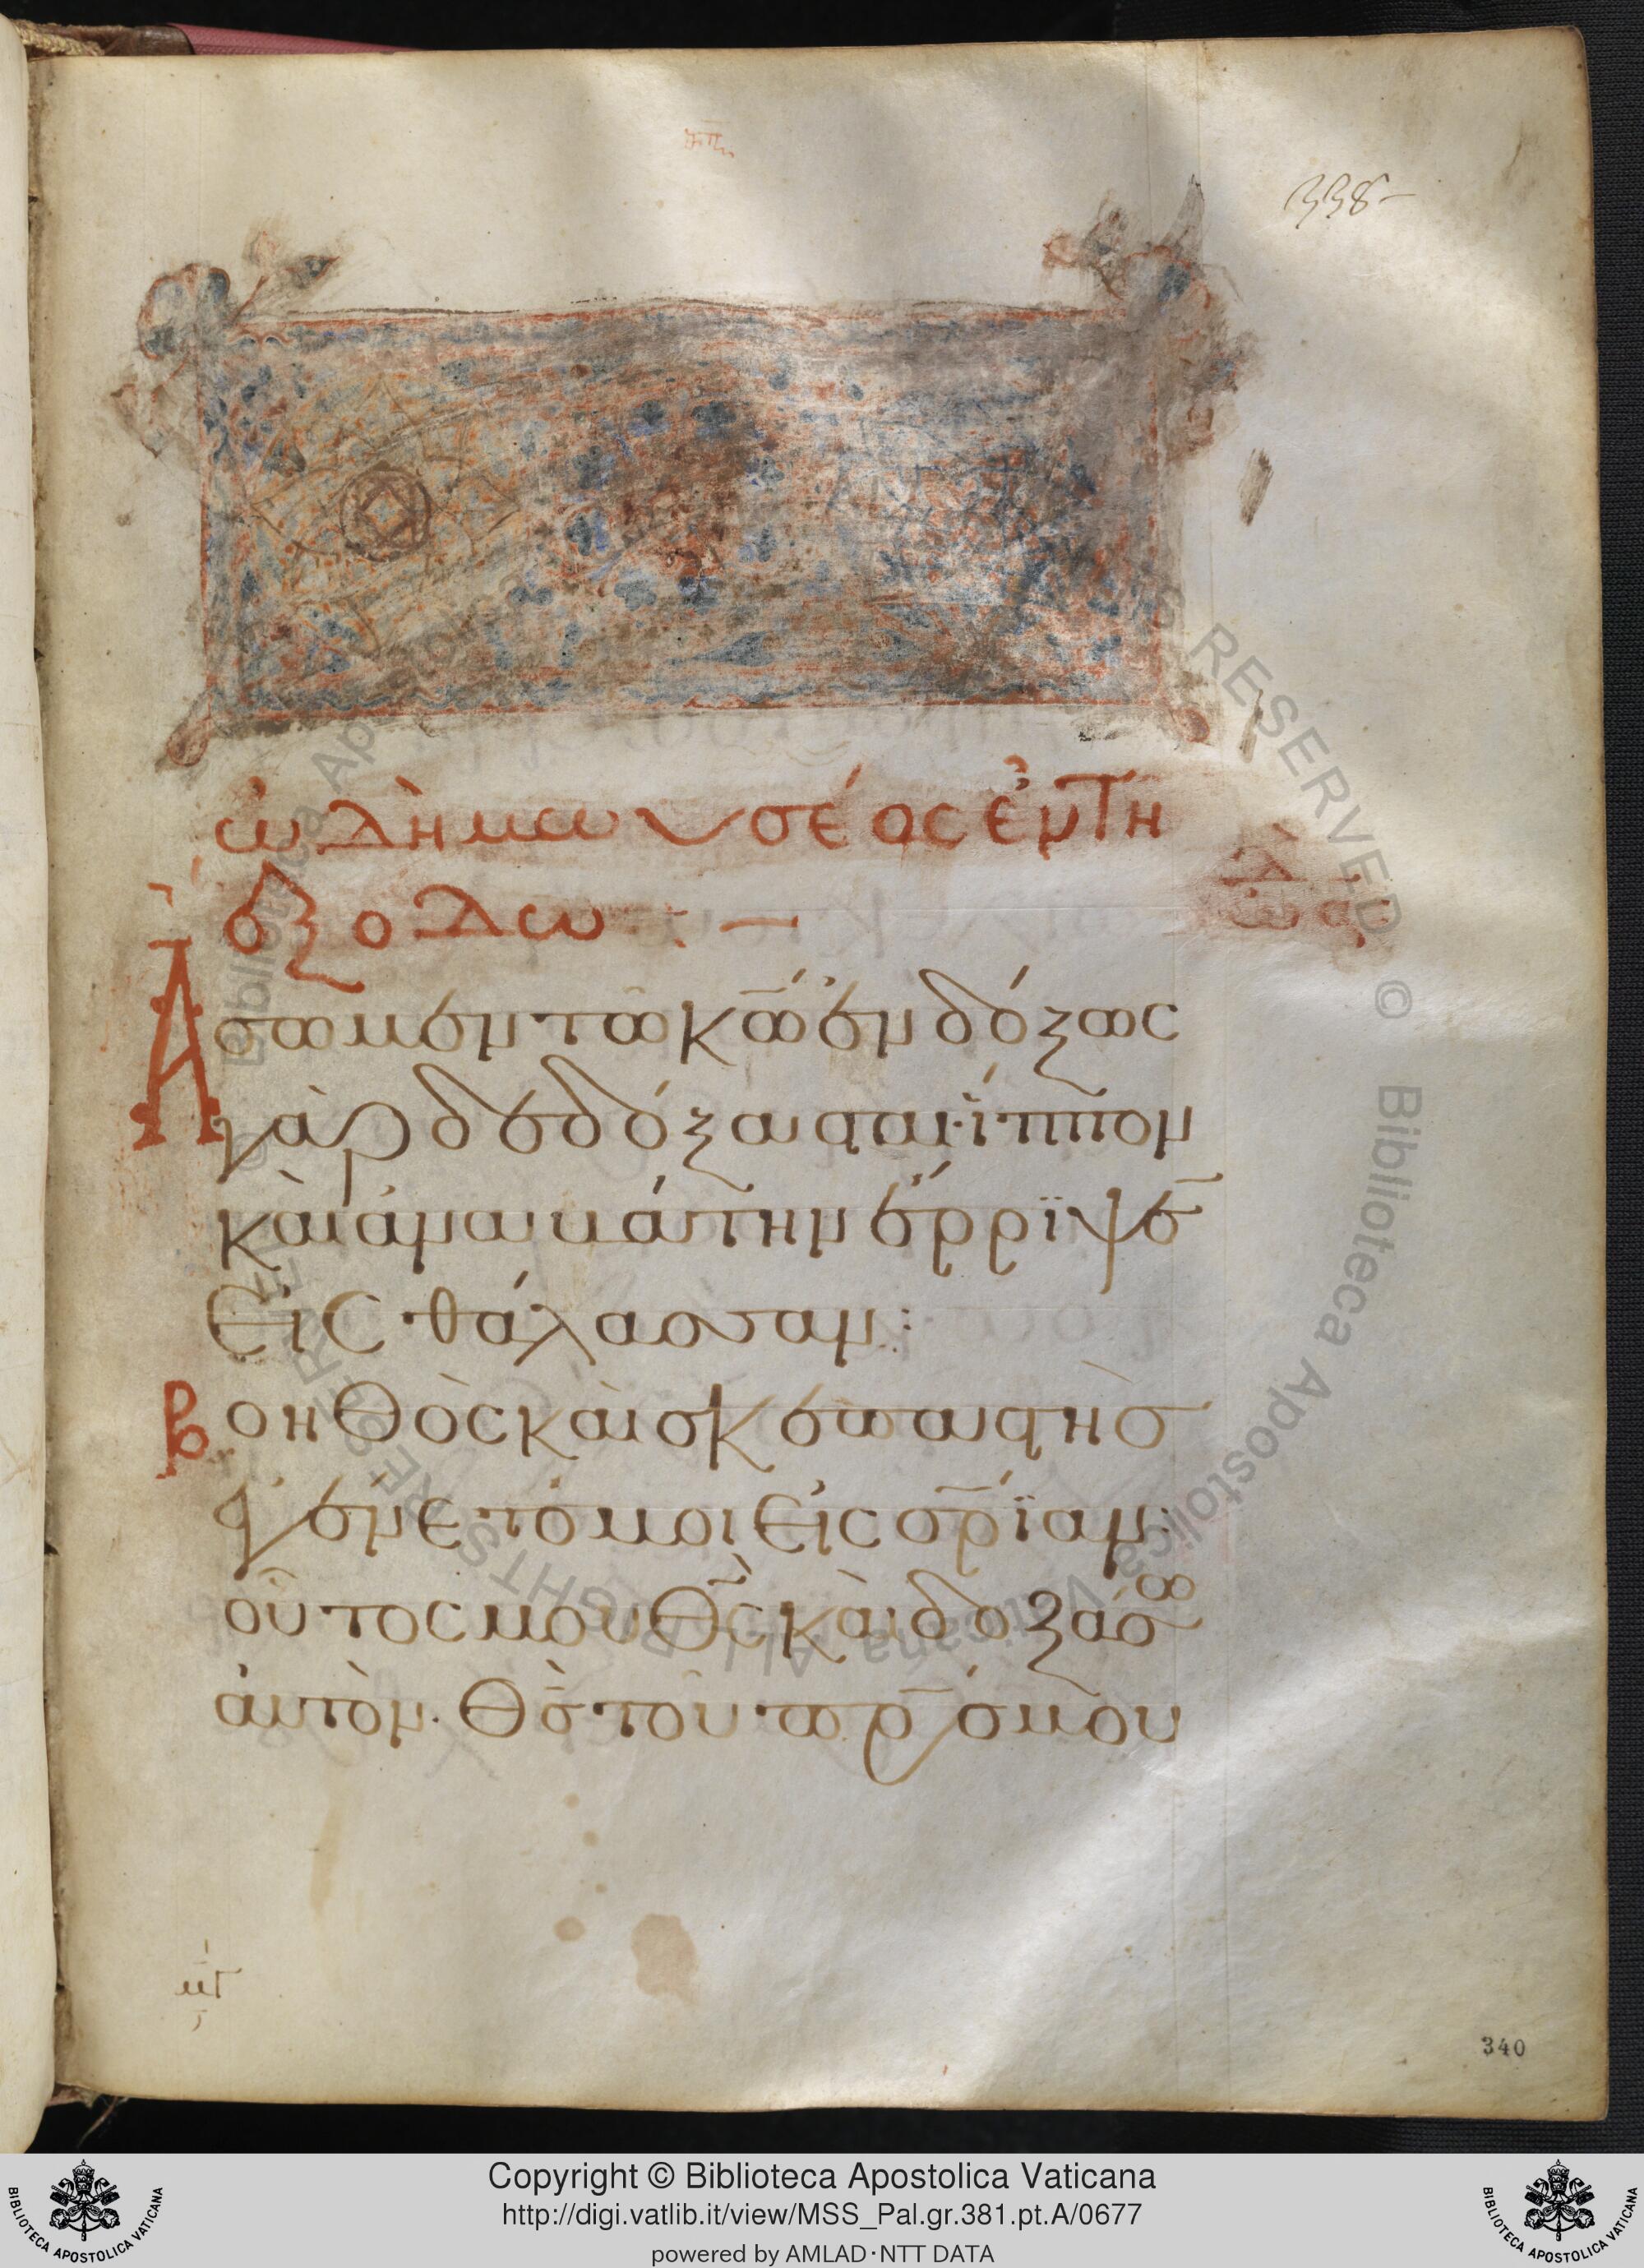 338
ὠδὴ μωυσέως ἐν τῆ
ἐξόδω : —
ὠδὴ
α
Ἄσωμεν τῶ κῶ ἐνδόξως
γὰρ δεδόξασται· ἵππον
καὶ ἀναβάτην ἔρριψεν
εἰς θάλασσαν :
Βοηθὸς καὶ σκεπαστὴς
ἐγένετό μοι εἰς σρίαν·
οὗτός μου θς καὶ δοξάσω
αὐτὸν· θς τοῦ πρς μου
μγ
340
Copyright © Biblioteca Apostolica Vaticana
http://digi.vatlib.it/view/MSS_Pal.gr.381.pt.A/0677
powered by AMLAD·NTT DATA
BIBLIOTECA APOSTOLICA VATICANA
BIBLIOTECA APOSTOLICA VATICANA